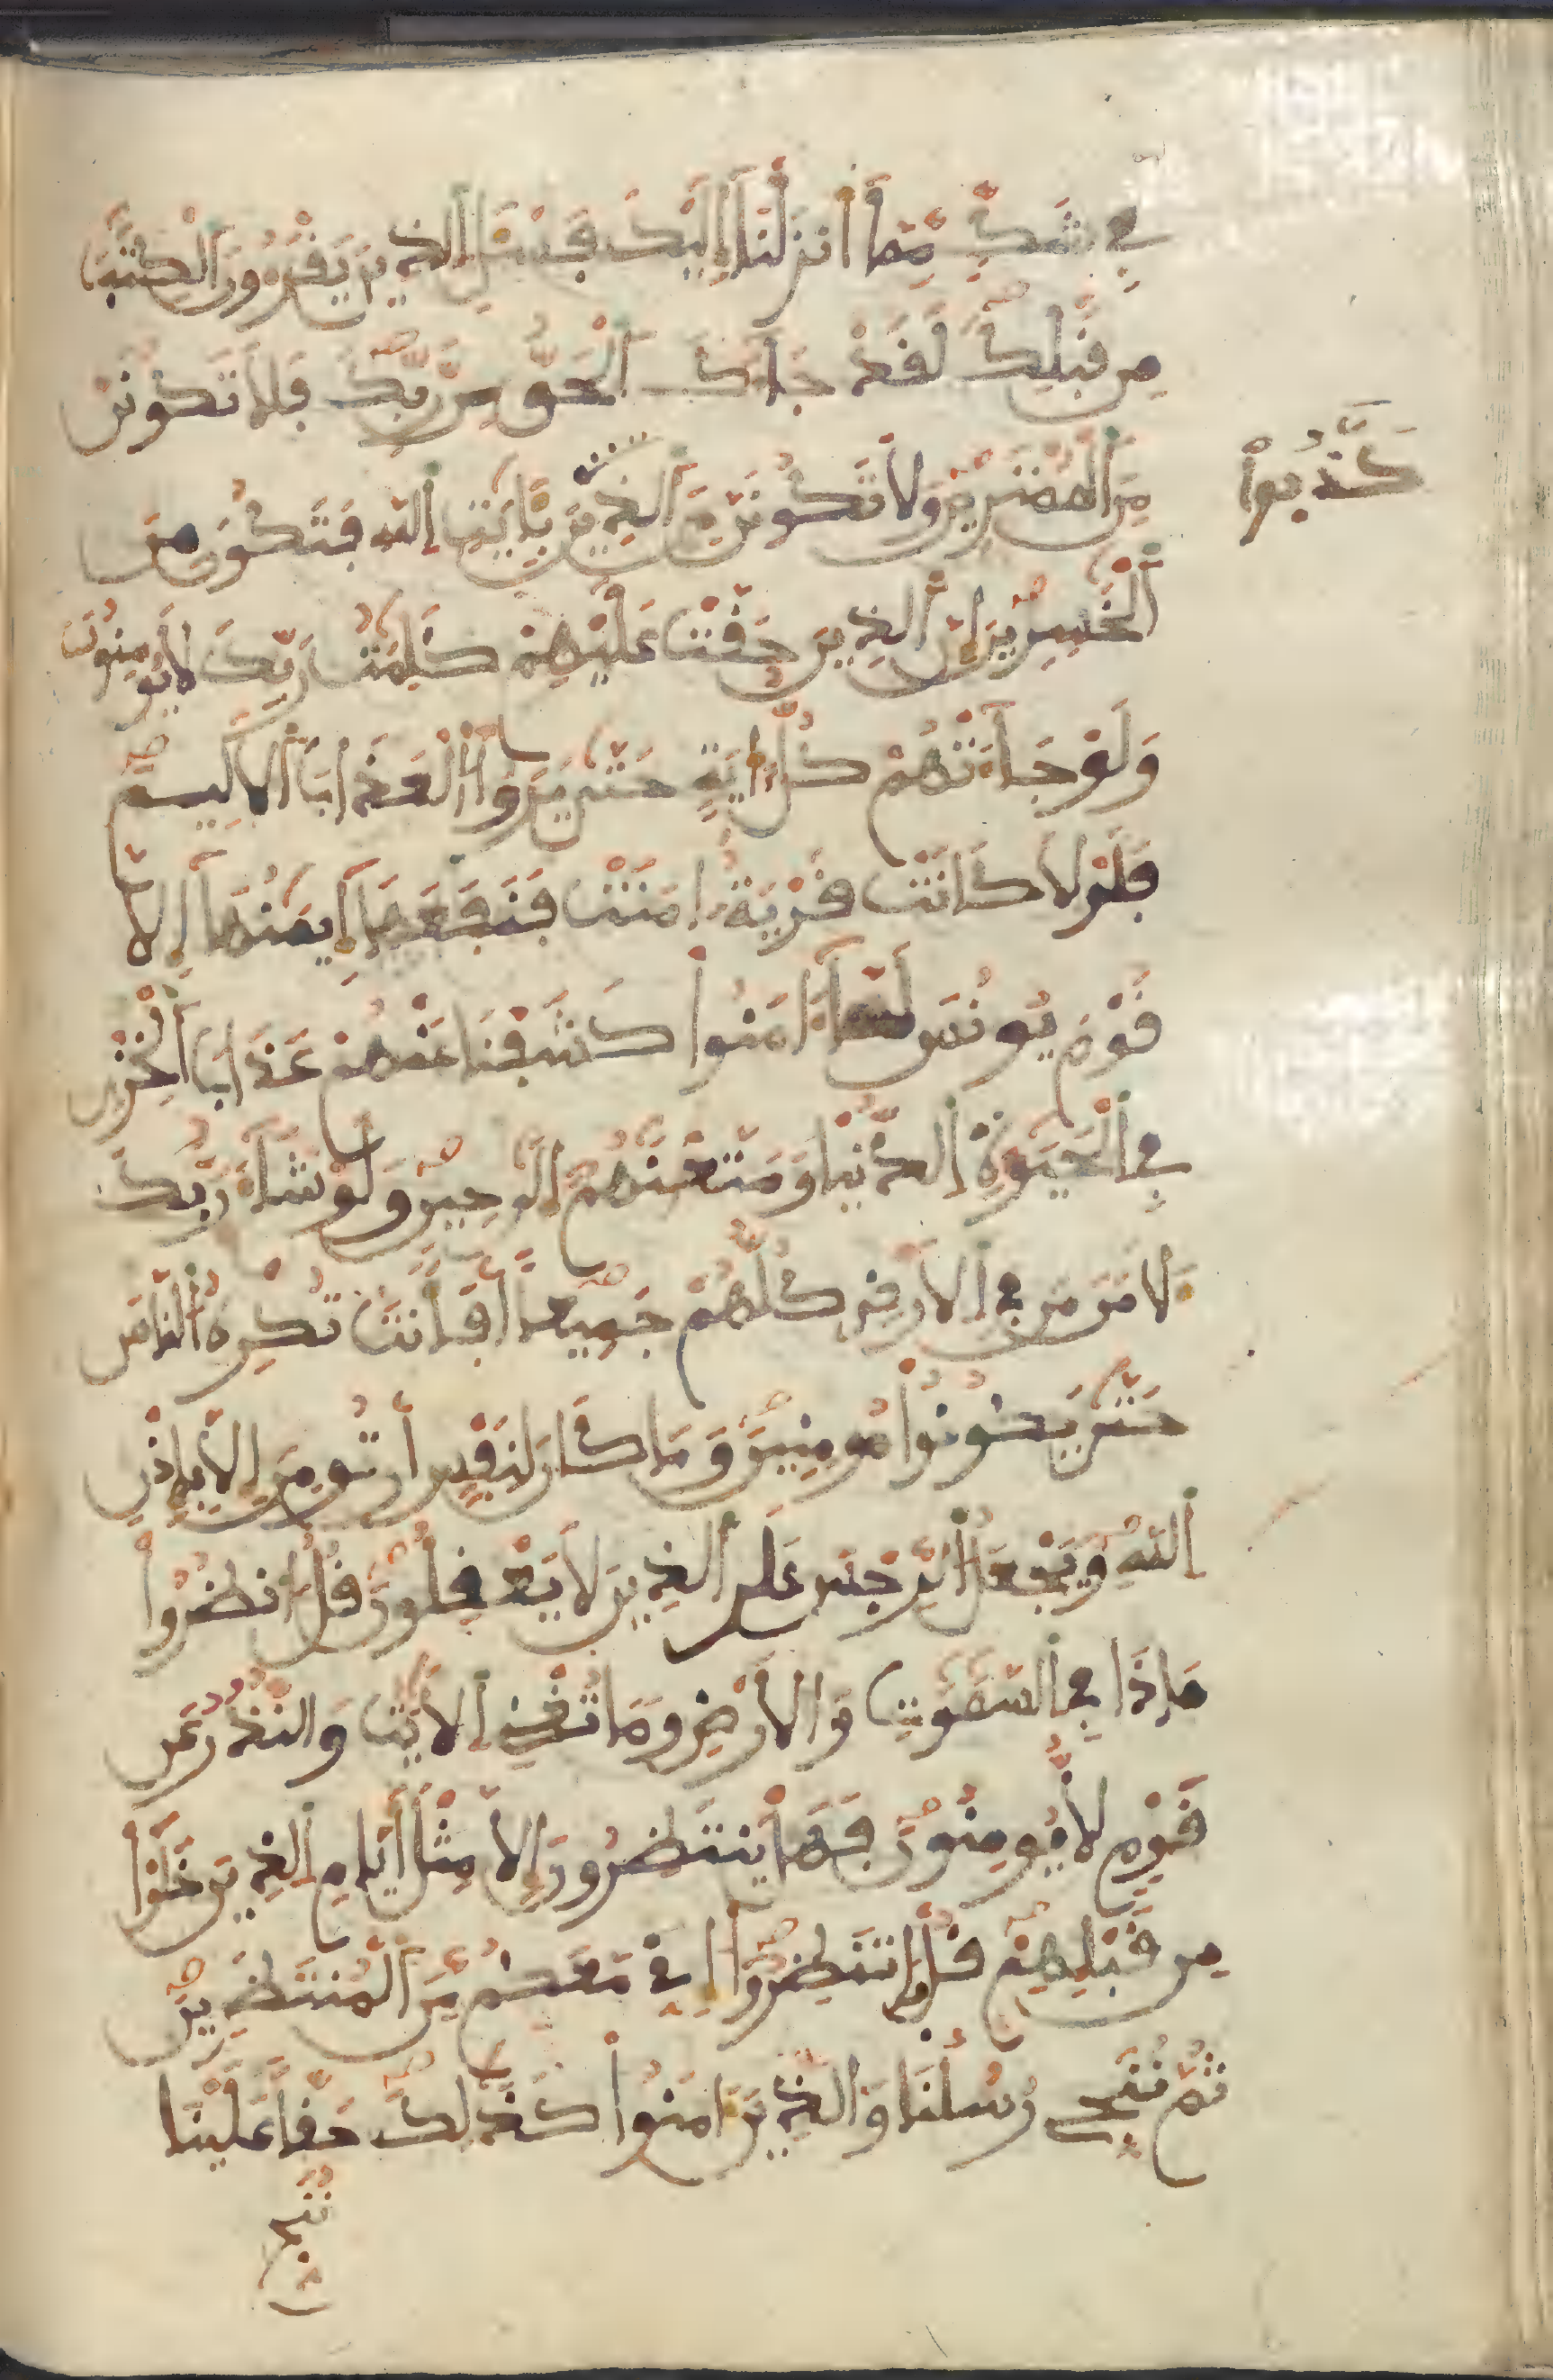 فِي شَكٍّ مِّمَّا أَنزَلْنَا إِلَيْكَ فَسْـَٔلِ الذِينَ يَقْرَءُونَ الْكِتَٰبَ
مِن قَبْلِكَ لَقَدْ جَآءَكَ الْحَقُّ مِن رَّبِّكَ فَلَا تَكُونَنَّ
مِنَ الْمُمْتَرِينَ وَلَا تَكُونَنَّ مِنَ الذِينَ بِـَٔايَٰتِ اللَّهِ فَتَكُونَ مِنَ
كَذَّبُوا
الْخَٰسِرِينَ إِنَّ الذِينَ حَقَّتْ عَلَيْهِمْ كَلِمَٰتُ رَبِّكَ لَا يُومِنُونَ
وَلَوْ جَآءَتْهُمْ كُلُّ ءَايَةٍ حَتَّىٰ يَرَوُا الْعَذَابَ الْأَلِيمَ
فَلَوْلَا كَانَتْ قَرْيَةٌ ءَامَنَتْ فَنَفَعَهَا إِيمَٰنُهَا إِلَّا
قَوْمَ يُونُسَ لَمَّا ءَامَنُوا كَشَفْنَا عَنْهُمْ عَذَابَ الْخِزْيِ
فِي الْحَيَوٰةِ الدُّنْيَا وَمَتَّعْنَٰهُمْ إِلَىٰ حِينٍ وَلَوْ شَآءَ رَبُّكَ
لَأَمَنَ مَن فِي الْأَرْضِ كُلُّهُمْ جَمِيعًا أَفَأَنتَ تُكْرِهُ النَّاسَ
حَتَّىٰ يَكُونُوا مُومِنِينَ وَمَا كَانَ لِنَفْسٍ أَن تُومِنَ إِلَّا بِإِذْنِ
اللَّهِ وَيَجْعَلُ الرِّجْسَ عَلَى الذِينَ لَا يَعْقِلُونَ قُلُ انظُرُوا
مَاذَا فِي السَّمَٰوَٰتِ وَالْأَرْضِ وَمَا تُغْنِي الْأَيَٰتُ وَالنُّذُرُ عَن
قَوْمٍ لَّا يُومِنُونَ فَهَلْ يَنتَظِرُونَ إِلَّا مِثْلَ أَيَّامِ الذِينَ خَلَوْا
مِن قَبْلِهِمْ قُلْ فَانتَظِرُوا إِنِّي مَعَكُم مِّنَ الْمُنتَظِرِينَ
ثُمَّ نُنَجِّي رُسُلَنَا وَالذِينَ ءَامَنُوا كَذَٰلِكَ حَقًّا عَلَيْنَا
نُنَجِّ